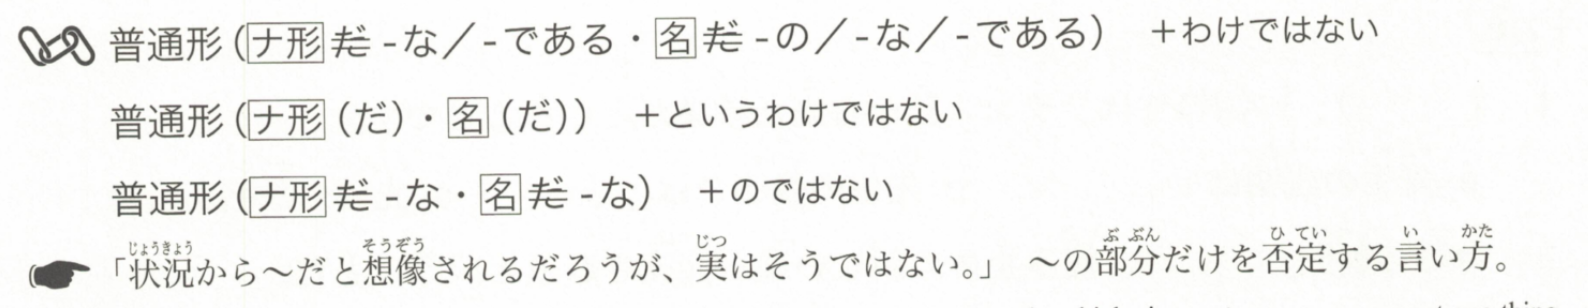 普通形（ナ形だ -な／-である・名だ -の／-な／-である） ＋わけではない
普通形（ナ形（だ）・名（だ）） ＋というわけではない
普通形（ナ形だ -な・名だ -な） ＋のではない
「状況から～だと想像されるだろうが、実はそうではない。」 ～の部分だけを否定する言い方。